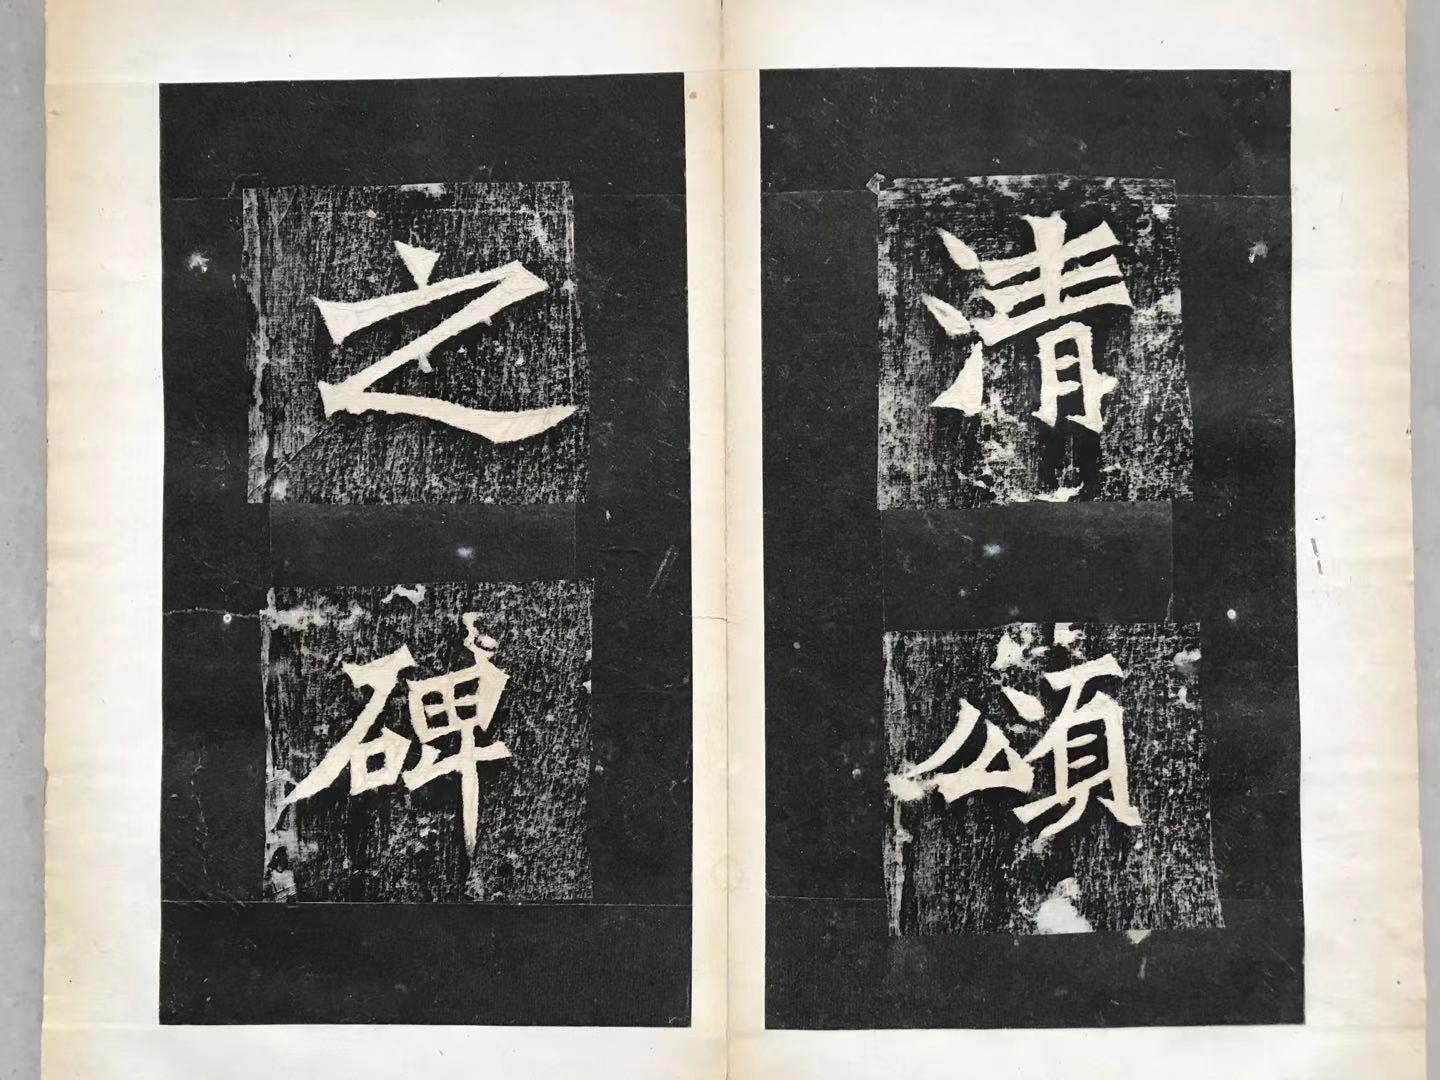 清頌
之碑